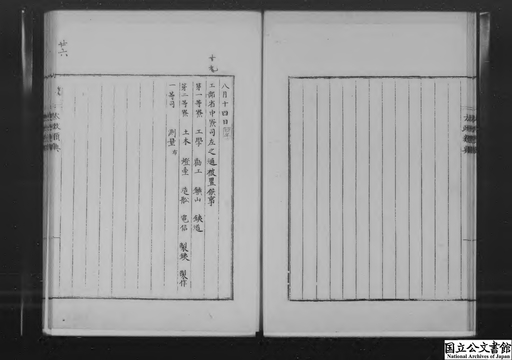 十九
八月十四日
工部省中寮司左之通被置候事
第一等寮 工学 勧工 鉱山 鉄道
第二等寮 土木 燈台 造船 電信 製鉄 製作
一等司 測量
廿六
国立公文書館
National Archives of Japan